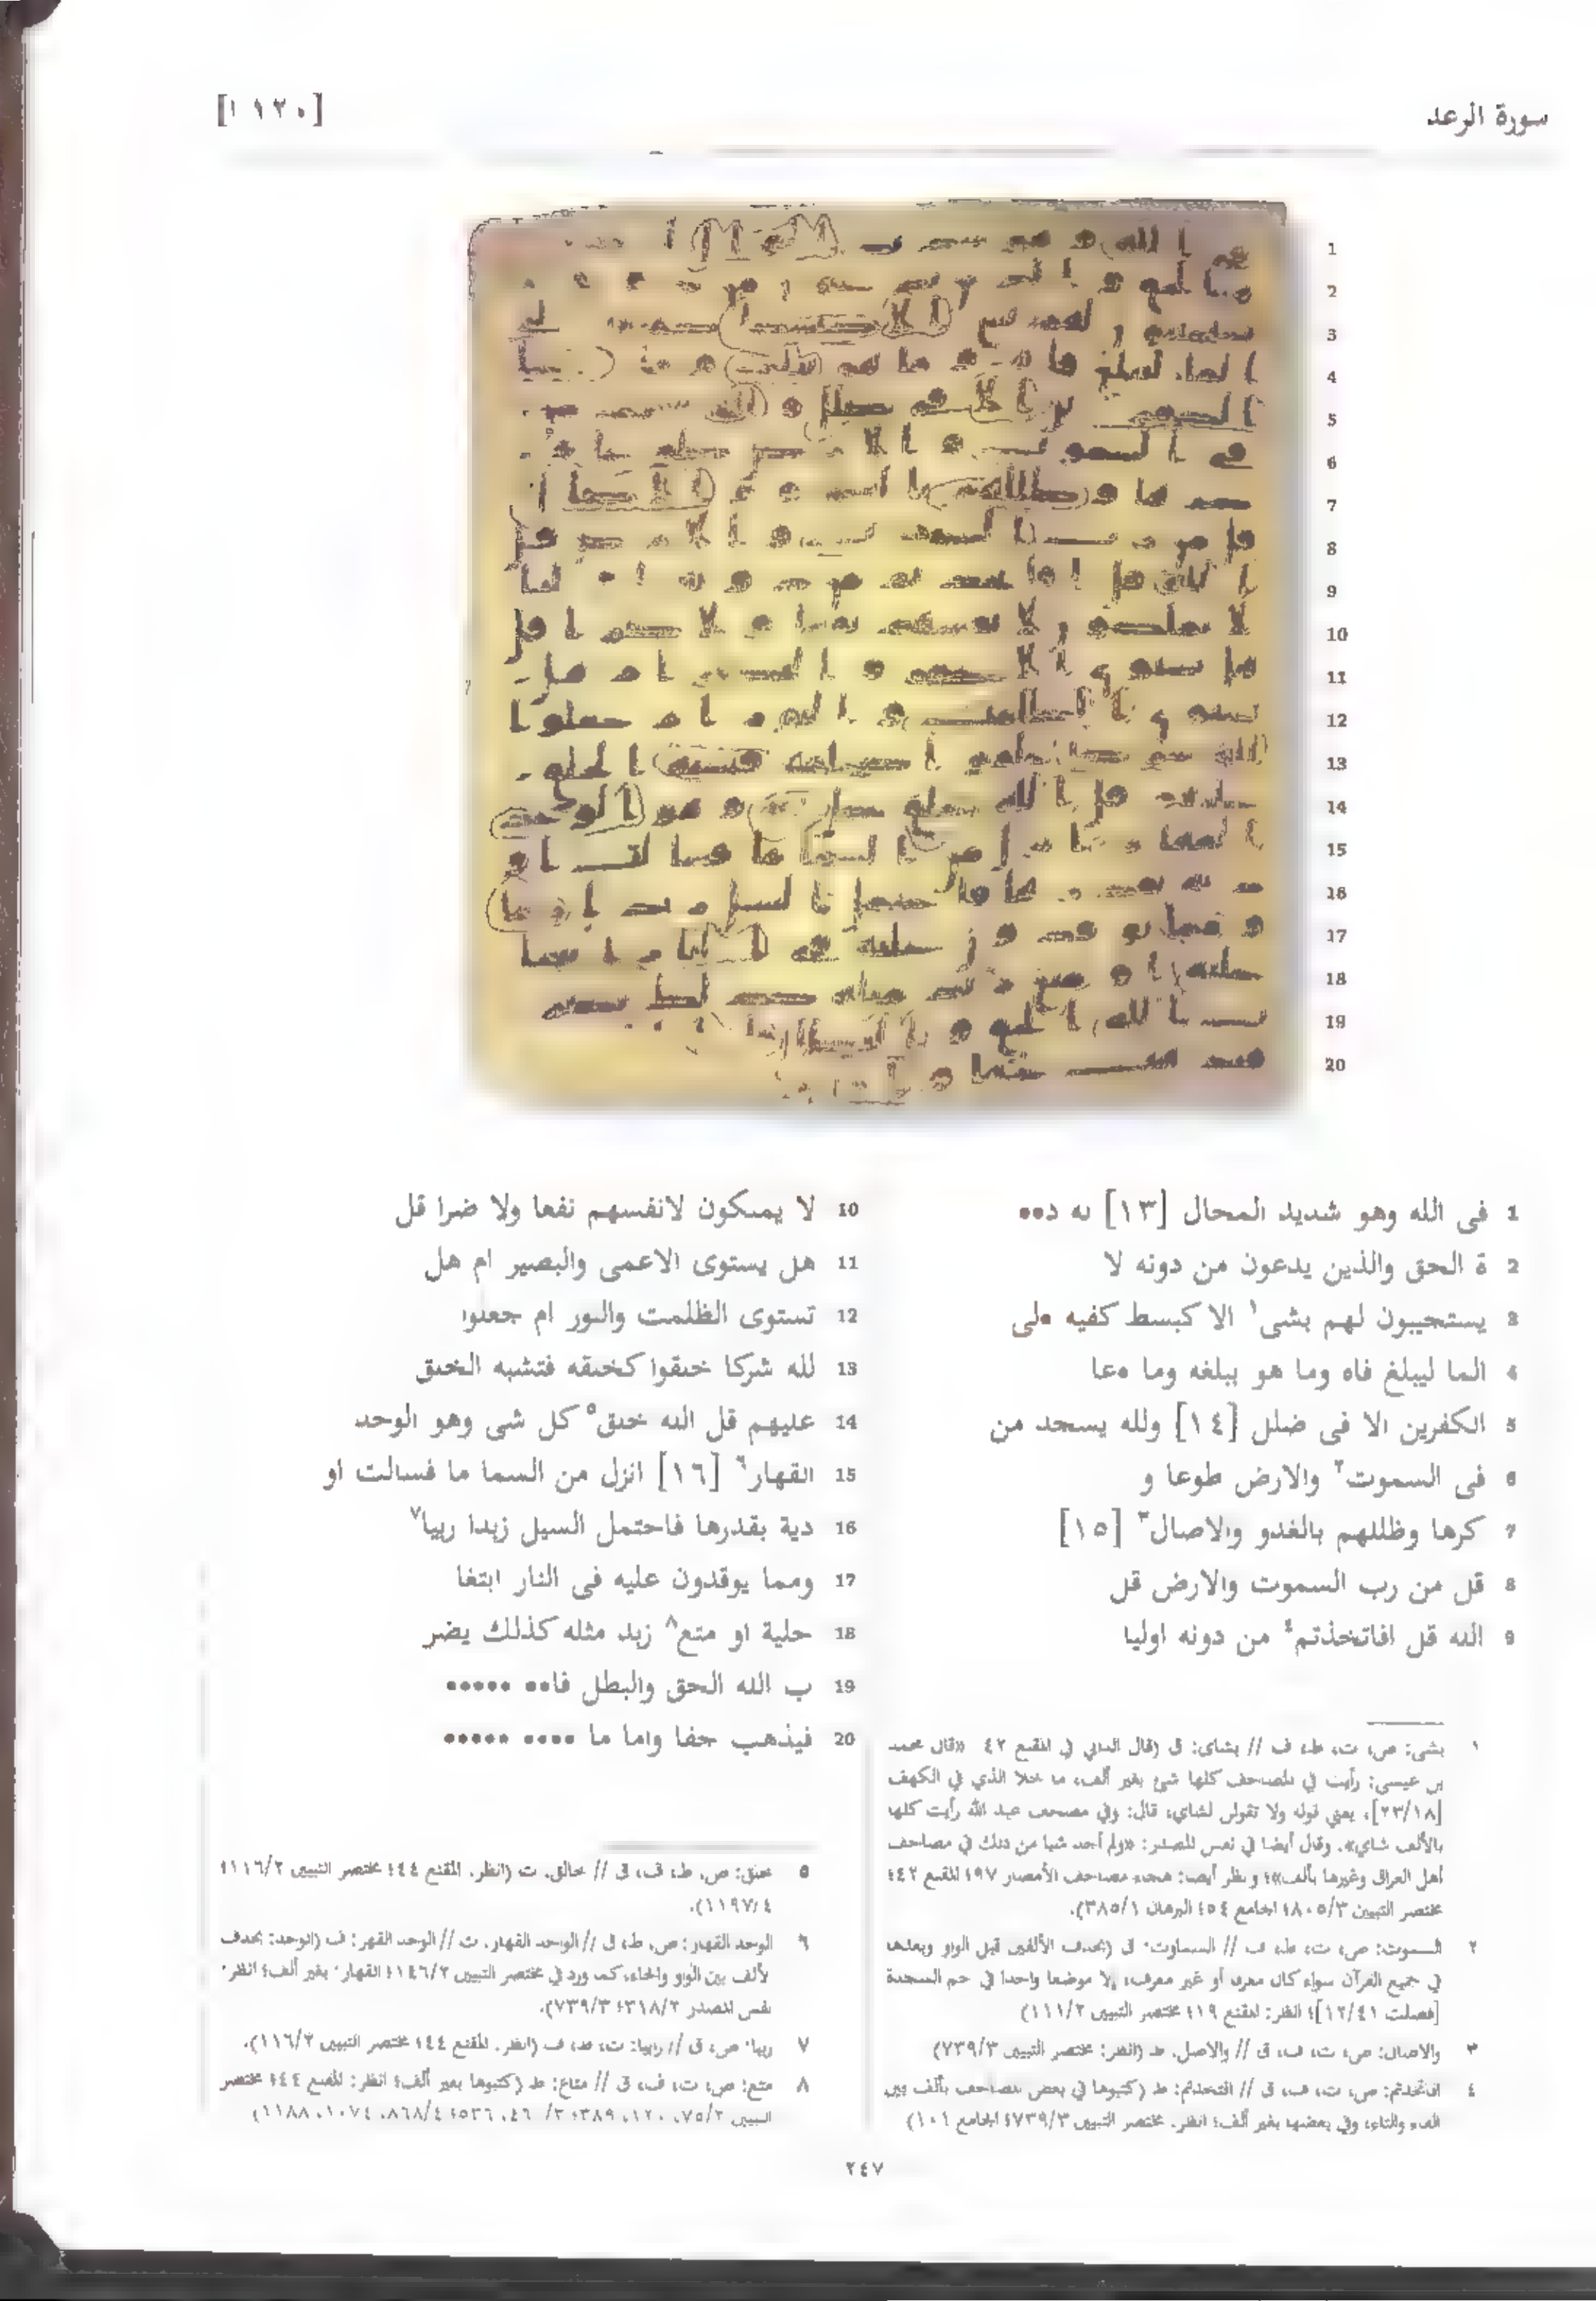 سورة الرعد
[١٩٢٠]
1 فى الله وهو شديد المحال [١٣] له د••
2 ة الحق والذين يدعون من دونه لا
3 يستجيبون لهم بشى١ الا كبسط كفيه •لى
4 الما ليبلغ فاه وما هو ببلغه وما •عا
5 الكفرين الا فى ضلل [١٤] ولله يسجد من
6 فى السموت٢ والارض طوعا و
7 كرها وظللهم بالغدو والاصال٣ [١٥]
8 قل من رب السموت والارض قل
9 الله قل افاتخذتم٤ من دونه اوليا
10 لا يملكون لانفسهم نفعا ولا ضرا قل
11 هل يستوى الاعمى والبصير ام هل
12 تستوى الظلمت والنور ام جعلوا
13 لله شركا خلقوا كخلقه فتشبه الخلق
14 عليهم قل الله خلق٥ كل شى وهو الوحد
15 القهار٦ [١٦] انزل من السما ما فسالت او
16 دية بقدرها فاحتمل السيل زبدا ربيا٧
17 ومما يوقدون عليه فى النار ابتغا
18 حلية او متع٨ زبد مثله كذلك يضر
19 ب الله الحق والبطل فا•• •••••
20 فيذهب جفا واما ما •••• •••••
١ بشى: ص، ت، ط، ف // بشاى: ق (قال الداني في المقنع ٤٢ «قال محمد
بن عيسى: رأيت في المصاحف كلها شئ بغير ألف، ما خلا الذي في الكهف
[٢٣/١٨]، يعني قوله ولا تقولن لشاي، قال: وفي مصحف عبد الله رأيت كلها
بالألف شاي». وقال أيضا في نفس المصدر: «ولم أجد شيا من ذلك في مصاحف
أهل العراق وغيرها بألف»؛ وانظر أيضا: هجاء مصاحف الأمصار ٩٧؛ المقنع ٤٢؛
مختصر التبيين ٨٠٥/٣؛ الجامع ٥٤؛ البرهان ٣٨٥/١).
٢ السموت: ص، ت، ط، ف // السماوت: ق (بحذف الألفين قبل الواو وبعدها
في جميع القرآن سواء كان معرف أو غير معرف، إلا موضعا واحدا في حم السجدة
[فصلت ١٢/٤١]؛ انظر: المقنع ١٩؛ مختصر التبيين ١١١/٢)
٣ والاصال: ص، ت، ف، ق // والاصل: ط (انظر: مختصر التبيين ٧٣٩/٣)
٤ افاتخذتم: ص، ت، ف، ق // افتخذتم: ط (كتبوها في بعض المصاحف بألف بين
الفاء والتاء، وفي بعضها بغير ألف؛ انظر: مختصر التبيين ٧٣٩/٣؛ الجامع ١٠٦)
٥ خلق: ص، ط، ف، ق // خالق: ت (انظر: المقنع ٤٤؛ مختصر التبيين ١١٦/٢؛
١١٩٧/٤).
٦ الوحد القهار: ص، ط، ق // الواحد القهار: ت // الوحد القهر: ف (الوحد: بحذف
لألف بين الواو والحاء، كما ورد في مختصر التبيين ١٤٦/٢؛ القهار: بغير ألف؛ انظر:
نفس المصدر ٣١٨/٢؛ ٧٣٩/٣).
٧ ربيا: ص، ق // رابيا: ت، ط، ف (انظر: المقنع ٤٤؛ مختصر التبيين ١١٦/٢).
٨ متع: ص، ت، ف، ق // متاع: ط (كتبوها بغير ألف؛ انظر: المقنع ٤٤؛ مختصر
التبيين ٧٥/٢، ١٢٠، ٣٨٩؛ ٣/ ٤٦، ٥٣٦؛ ٨٦٨/٤، ١٠٧٤، ١١٨٨)
٢٤٧